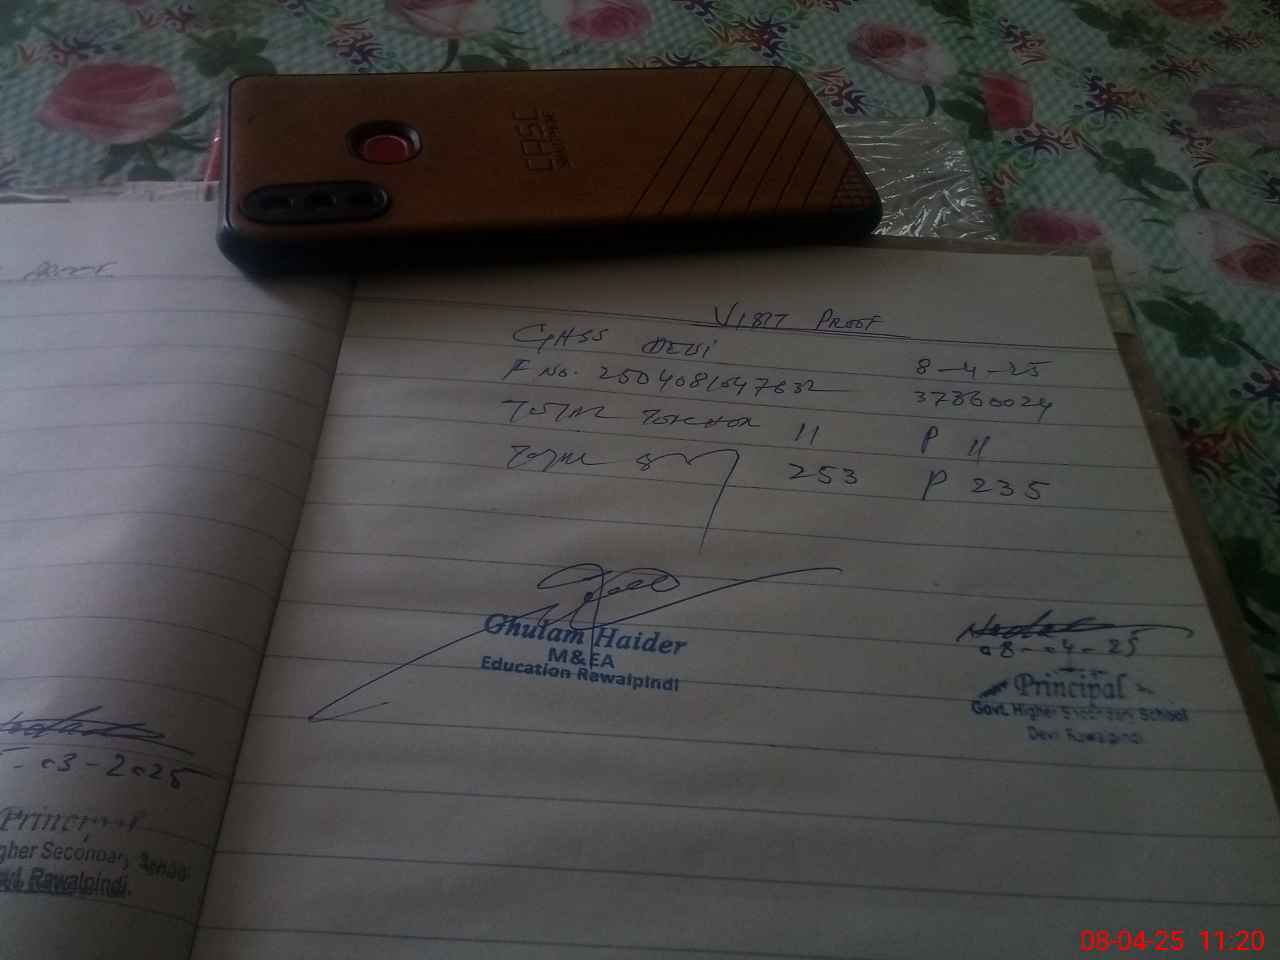 CASE
VISIT PROOF
GHSS DEVI 8-4-25
F No. 2504081047632 37360024
Total 11 P 11
Total 253 P 235
Ghulam Haider
M&EA
Education Rawalpindi
08-04-25
Principal
Govt. Higher Secondary School
Devi Rawalpindi
-03-2025
Principal
gher Secondary School
Rawalpindi.
08-04-25 11:20